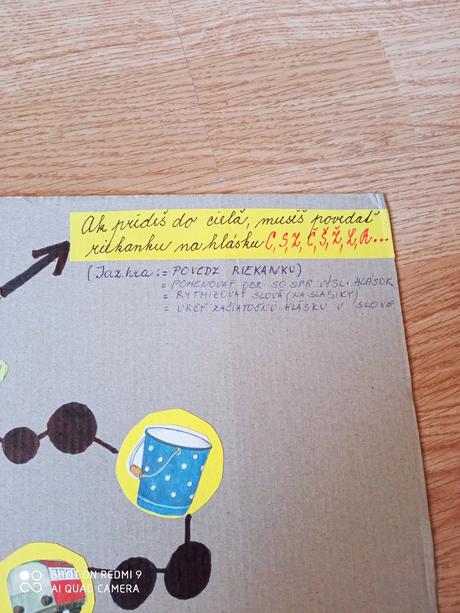 Ak prídiš do cieľa, musíš povedať
riekanku na hlásku C, S, Z, Č, Š, Ž, L, R...
(Jaz. hra: = POVEDZ RIEKANKU)
= POMENOVAŤ OBR. SO SPR. VÝSL. HLÁSOK
= RYTMIZOVAŤ SLOVÁ (NA SLABIKY)
= URČ. ZAČIATOČNÚ HLÁSKU V SLOVE
SHOT ON REDMI 9
AI QUAD CAMERA